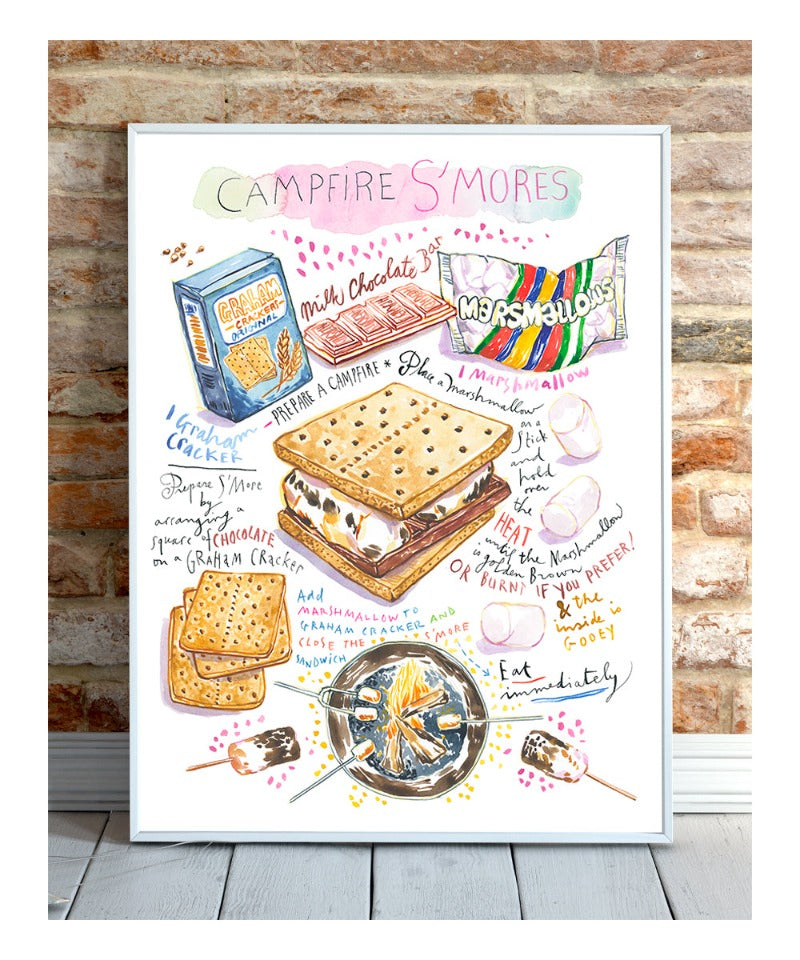 CAMPFIRE S'MORES
GRAHAM
CRACKERS
ORIGINAL
Milk Chocolate Bar
MARSMALLOWS
1 MARSHMALLOW
1 Graham
CRACKER
- PREPARE A CAMPFIRE * Place a marshmallow
on a
Stick
and
hold
over
the
HEAT
until the Marshmallow
is golden Brown
OR BURNT IF YOU PREFER!
& the
inside is
GOOEY
Prepare S'More
by
arranging a
square of CHOCOLATE
on a GRAHAM CRacker
Add
MARSHMALLOW TO
GRAHAM CRACKER AND
CLOSE THE S'MORE
SANDWICH
Eat
immediately